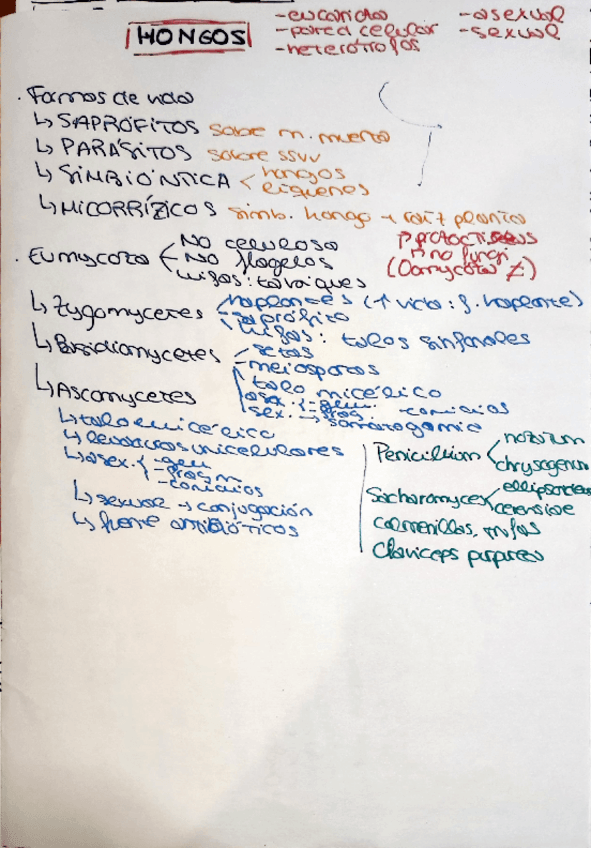 HONGOS
-eucariotas
-pared celular
-heterótrofos
-asexual
-sexual
· Formas de vida
↳ SAPRÓFITOS sobre m. muerta
↳ PARÁSITOS sobre ssvv
↳ SIMBIÓNTICA < hongos
líquenes
↳ MICORRÍZICOS simb. hongo + raíz planta
· Eumycota
- NO celulosa
- NO flagelos
- hifas: tabiques
P. protoctistas
no fungi
(Oomycota
↳ Zygomycetes
- haplontes (↑ vida: f. haplonte)
- saprófito
- hifas: talos sifonales
↳ Basidiomycetes
- setas
- meiosporas
talo micélico
asex. {-gem.
-frag. -conidios
sex. → somatogamia
↳ Ascomycetes
↳ talo micélico
↳ levaduras unicelulares
↳ asex. {-gem
-fragm
-conidios
↳ sexual → conjugación
↳ fuente antibióticos
Penicillium < notatum
chrysogenum
Sacharomyces < ellipsoideus
cerevisiae
colmenillas, trufas
Claviceps purpurea